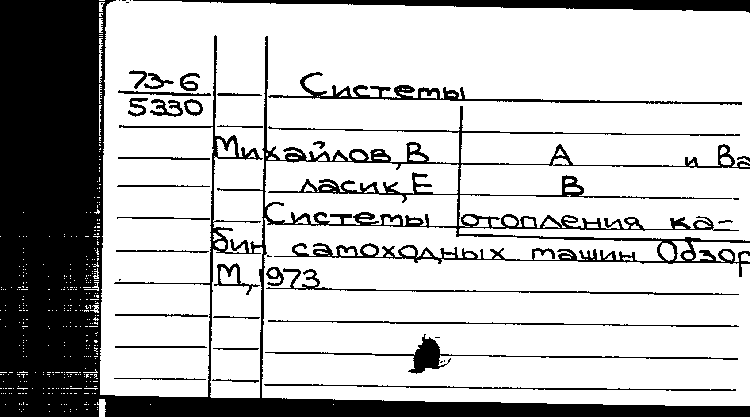 73-6 Системы
5330
Михайлов, В А и Ва
ласик, Е В
Системы отопления ка-
бин самоходных машин. Обзор
М, 1973